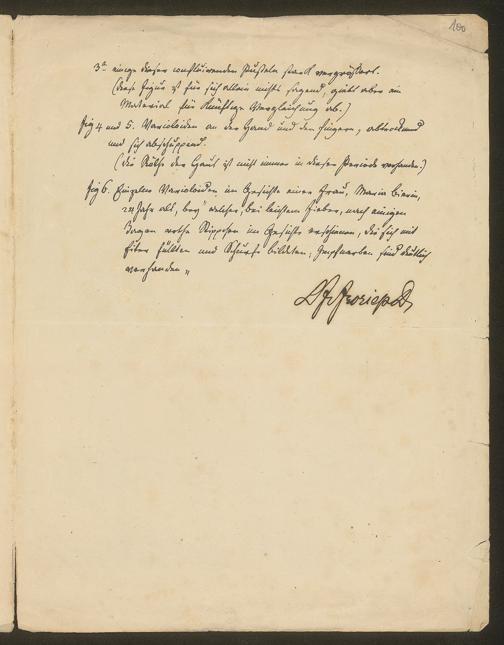 100
3a. einige dieser confluirenden Pusteln stark vergrößert.
(diese Figur ist für sich allein nichts sagend, giebt aber ein
Material für künftige Vergleichung ab.)
fig 4 und 5. Varioloiden an der Hand und den Fingern, abtrocknend
und sich abschuppend.
(die Röthe der Haut ist nicht immer in dieser Periode vorhanden.)
fig 6. Einzelne Varioloiden im Gesichte einer Frau, Maria
Jahr alt, bey welcher, bei leichtem Fieber, nach einigen
Tagen rothe Stippchen im Gesichte erschienen, die sich mit
Eiter füllten und Schorfe bildeten; Impfnarben sind deutlich
vorhanden
Froriep